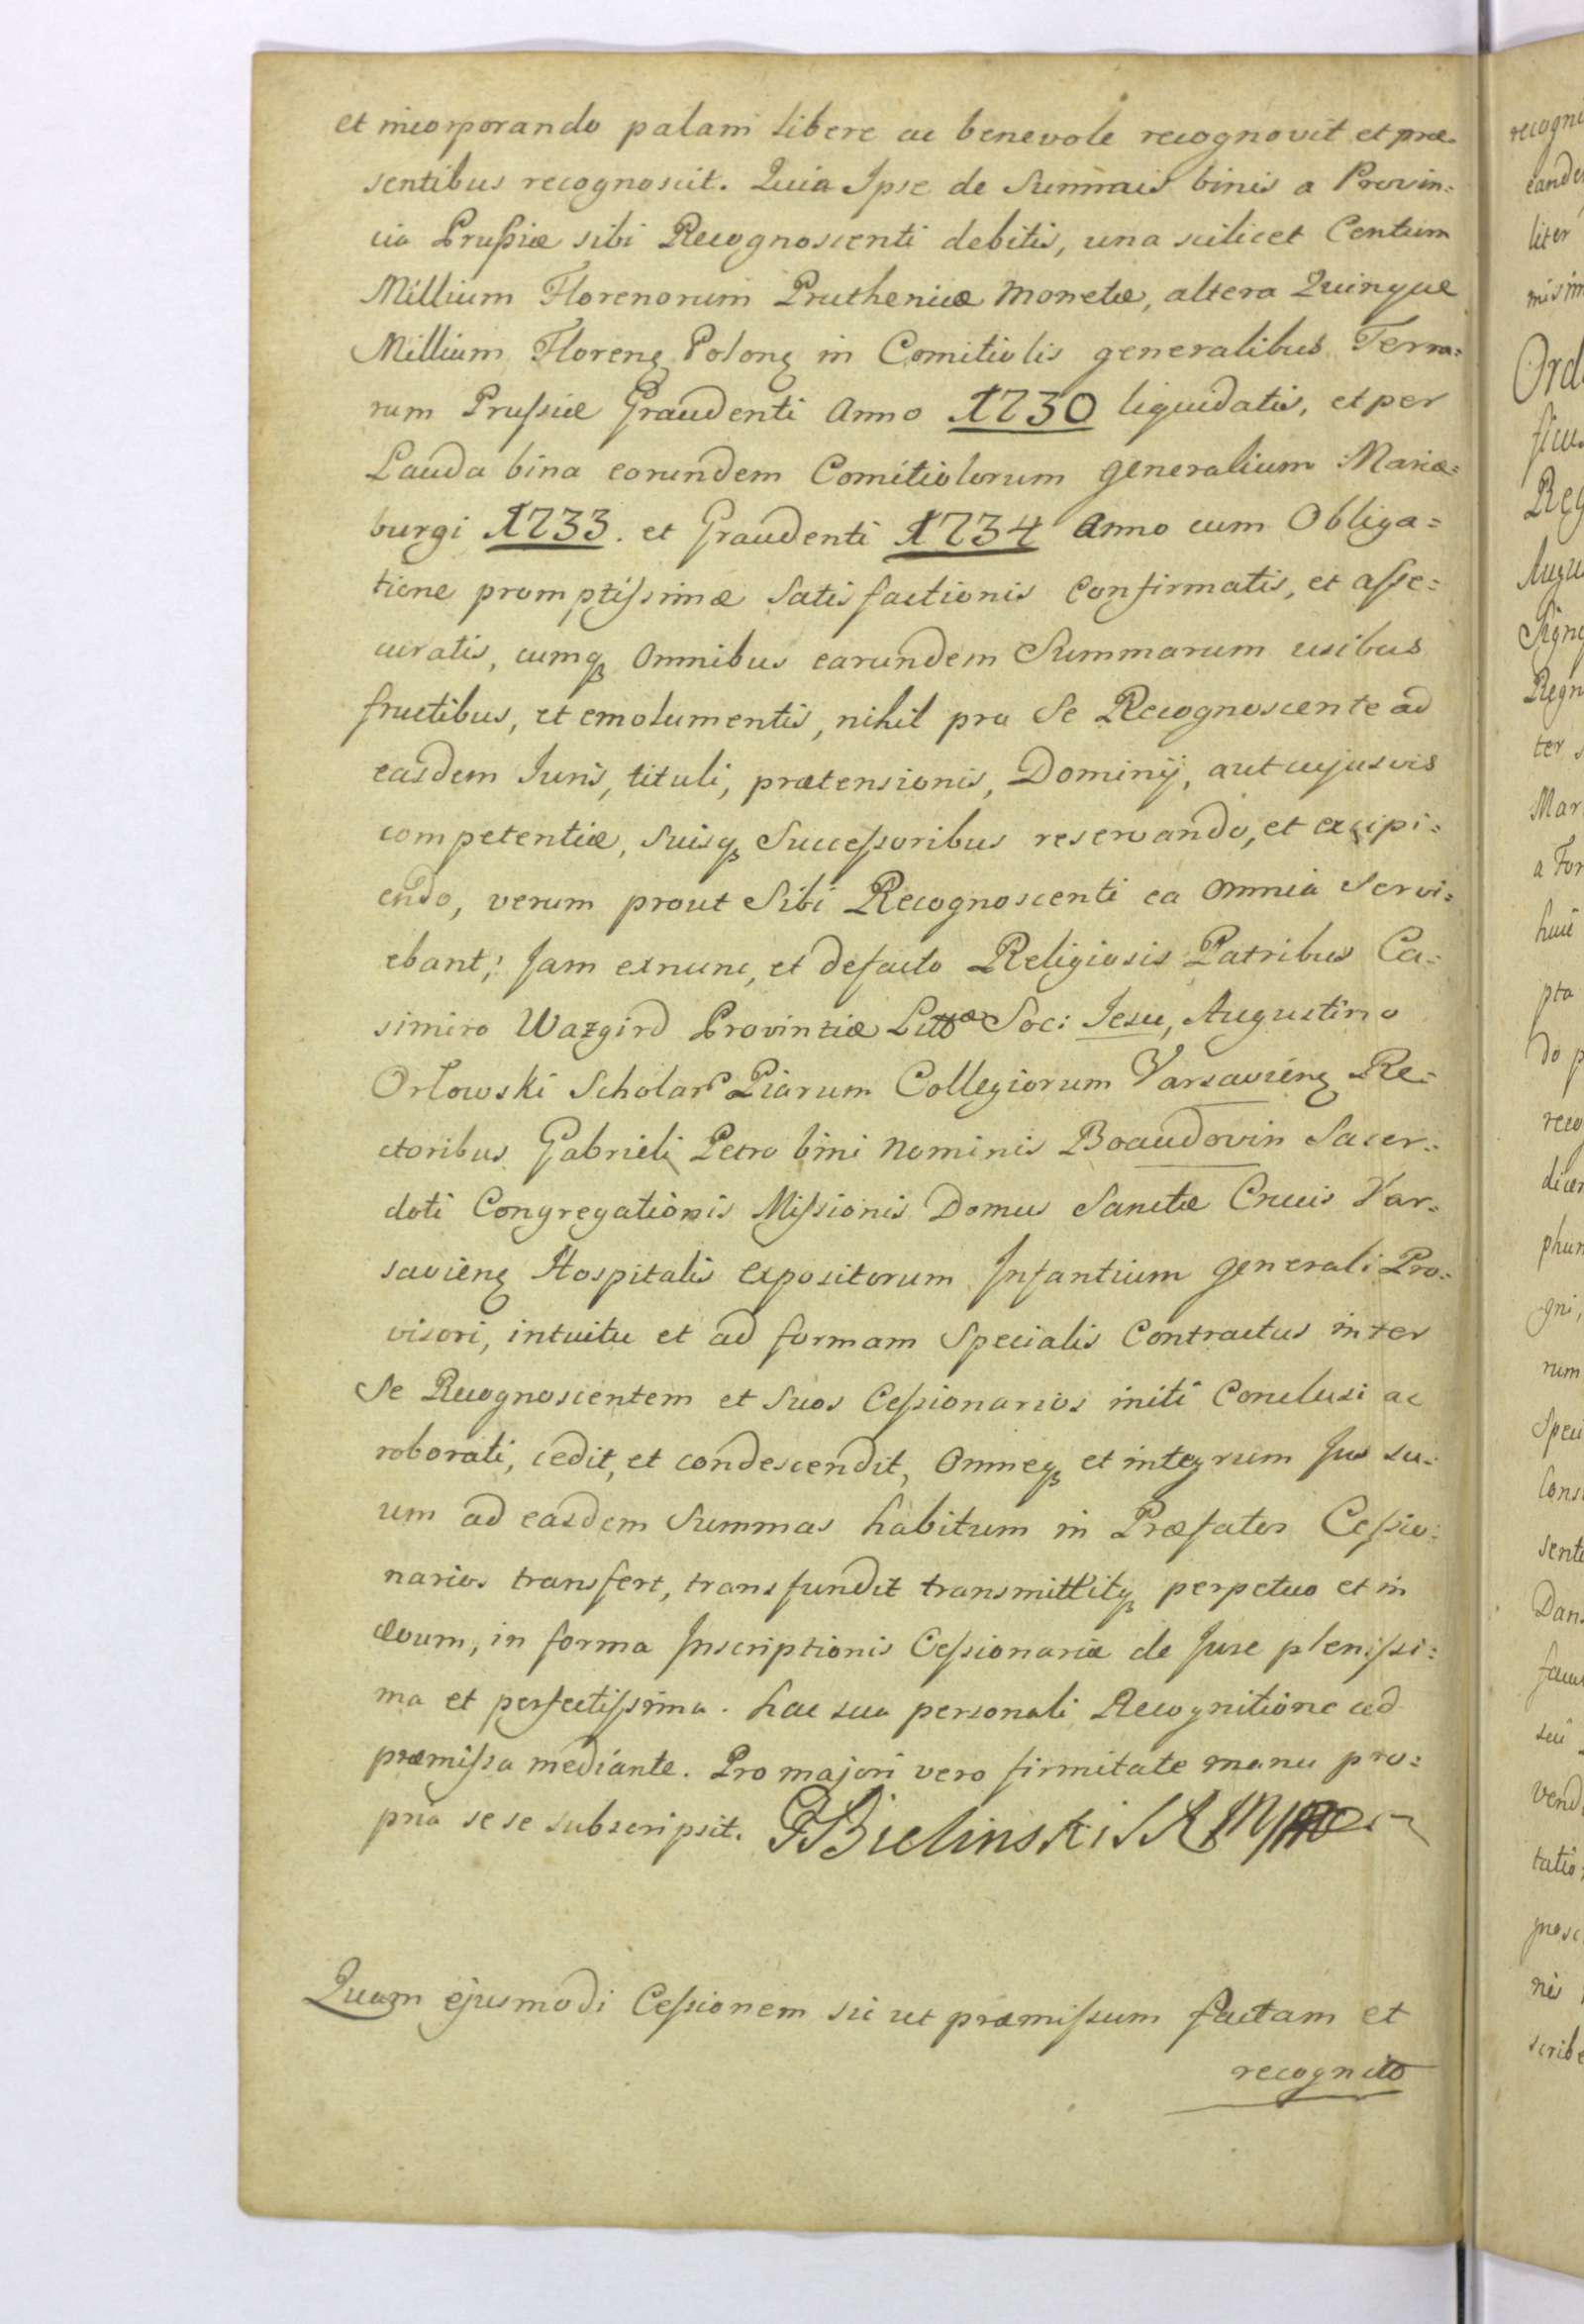 et incorporando palam libere ac benevole recognovit et præ-
sentibus recognoscit. Quia Ipse de Summis binis a Provin:
cia Prussiæ sibi Recognoscenti debitis, una scilicet Centum
Millium Florenorum Pruthenicæ Monetæ, altera Quinque
Millium Floren Polon in Comitiolis generalibus Terra:
rum Prussiæ Graudenti Anno 1730 liquidatis, et per
Lauda bina eorundem Comitiolorum generalium Mariæ:
burgi 1733. et Graudenti 1734 Anno cum Obliga=
tione promptissimæ Satisfactionis Confirmatis, et asse:
curatis, cumq Omnibus earundem Summarum usibus
fructibus, et emolumentis, nihil pro Se Recognoscente ad
easdem Juris, tituli, prætensionis, Dominij, aut cujusvis
competentiæ, Suisq Successoribus reservando, et excipi:
endo, verum prout Sibi Recognoscenti ea Omnia Servi:
ebant; Jam exnunc, et defacto Religiosis Patribus Ca:
simiro Wazgird Provintiæ Littæ Soci: Jesu, Augustino
Orłowski Scholar Piarum Collegiorum Varsavien Re:
ctoribus Gabrieli Petro bini Nominis Boaudovin Sacer:
doti Congregationis Missionis Domus Sanctæ Crucis Var:
savien Hospitalis Expositorum Infantium generali Pro:
visori, intuitu et ad formam Specialis Contractus inter
Se Recognoscentem et Suos Cessionarios initi Conclusi ac
roborati, cedit, et condescendit, Omneq et integrum Jus su:
um ad easdem Summas habitum in Præfatos Cessio:
narios transfert, transfundit transmittitq perpetuo et in
ævum, in forma Inscriptionis Cessionariæ de Jure plenissi:
ma et perfectissima. hac sua personali Recognitione ad
præmissa mediante. Pro majori vero firmitate manu pro:
pria se se subscripsit. Bielinski
Quam ejusmodi Cessionem sic ut præmissum factam et
recognito
recogn
eande
liter
Ord
Reg
Augu
Sign
Regn
ter
Mar
a For
pta
do p
reco
dicen
phun
gni,
rum
Spec
Cons
sent
Dan
vend
tatio
gnosc
nis
scribe